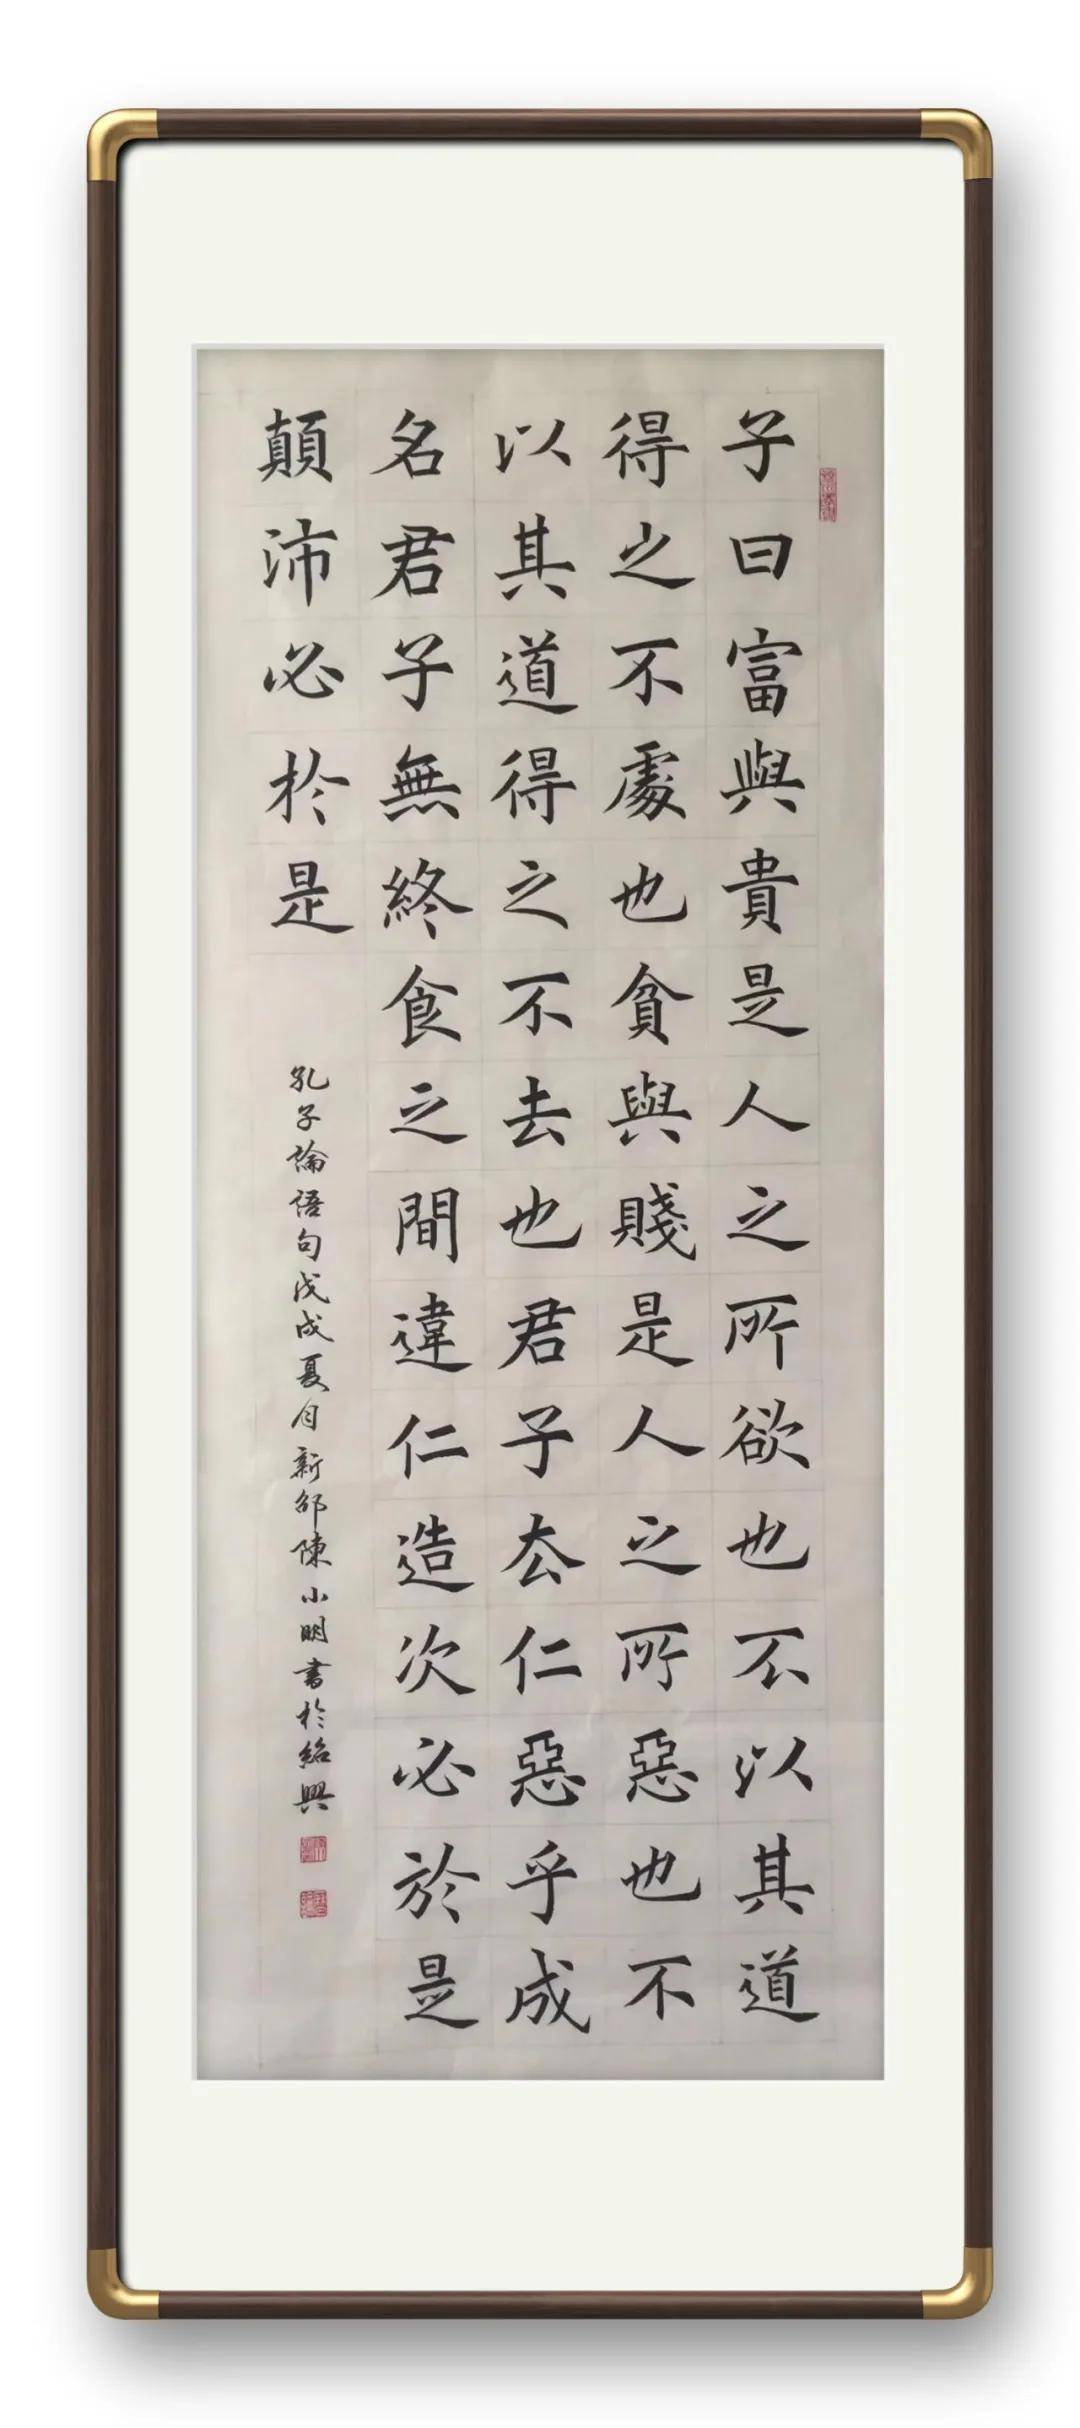 子曰富與貴是人之所欲也不以其道
得之不處也貧與賤是人之所惡也不
以其道得之不去也君子去仁惡乎成
名君子無終食之間違仁造次必於是
顛沛必於是
孔子論語句戊戌夏月新邵陳小明書於紹興